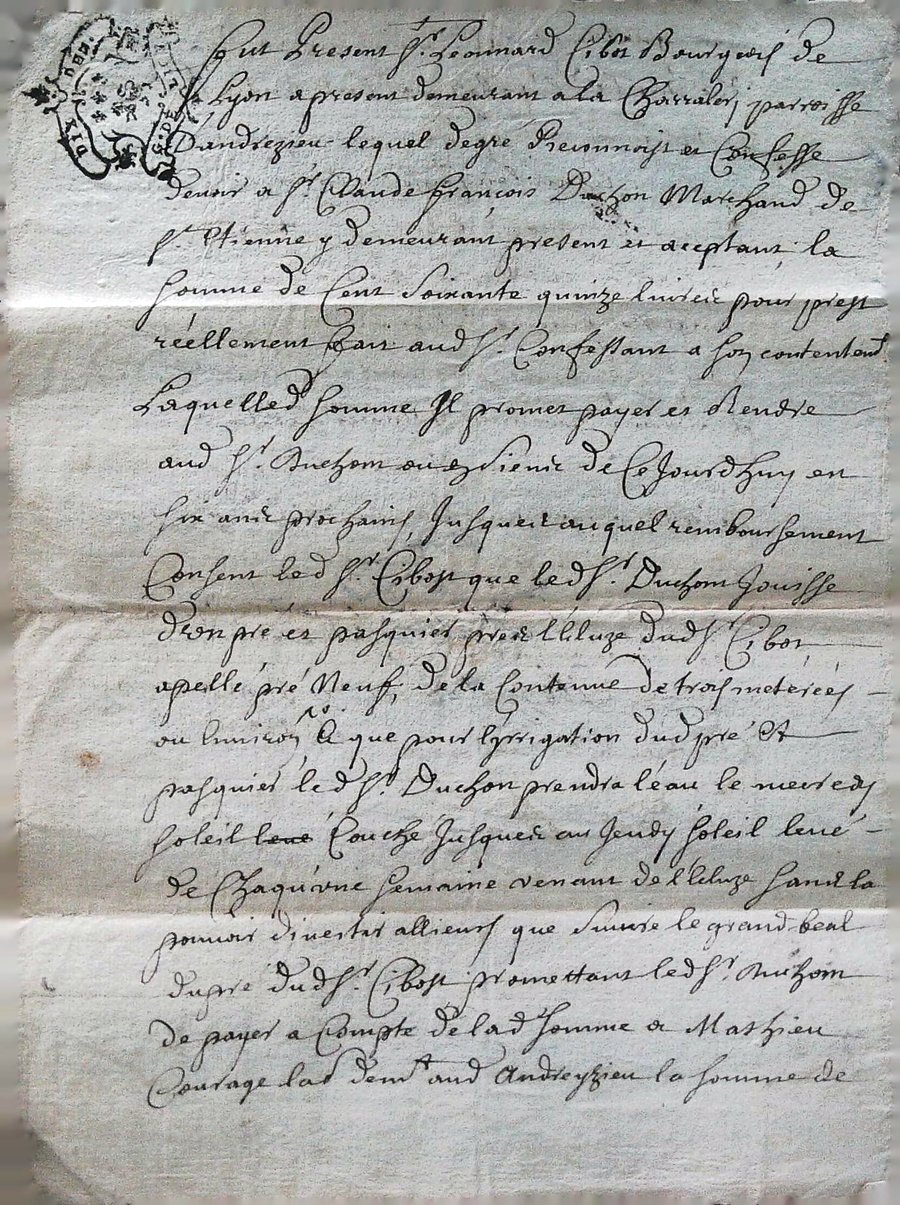 DIX DEN. G. DE L
fut Present Sr. Leonnard Cibot Bourgeois de
Lyon a present demeurant a la parroisse
Dandrezieu lequel degré Reconnoist et Confesse
devoir a Sr. Claude françois Duchon Marchand de
St. Etienne y demeurant present et aceptant la
somme de Cent Soixante quinze livres pour prest
réellement fait aud Sr. Confessant a son contentemt
Laquelled somme Il promet payer et Rendre
aud Sr. Duchon ou es Siens de Ce Jourdhuy en
six ans prochains, Jusques auquel remboursement
Consent led Sr. Cibost que led Sr. Duchon Jouisse
d'un pré et pasquier pres l'Ecluze dud Sr. Cibot
apellé pré Neuf, de la Contenue de trois meterées
ou Environ & que pour lyrrigation dud pré Et
pasquier led Sr. Duchon prendra léau le mecredy
soleil levé Couché Jusques au Jeudy soleil levé
de Chaqu'une semaine venant de l'Ecluze sans la
pouvoir divertir allieurs que Suivre le grand beal
du pré dud Sr. Cibost promettant led Sr. Duchon
de payer a Compte de lad somme a Mathieu
Courage lad demt aud Andreyzieu la somme de